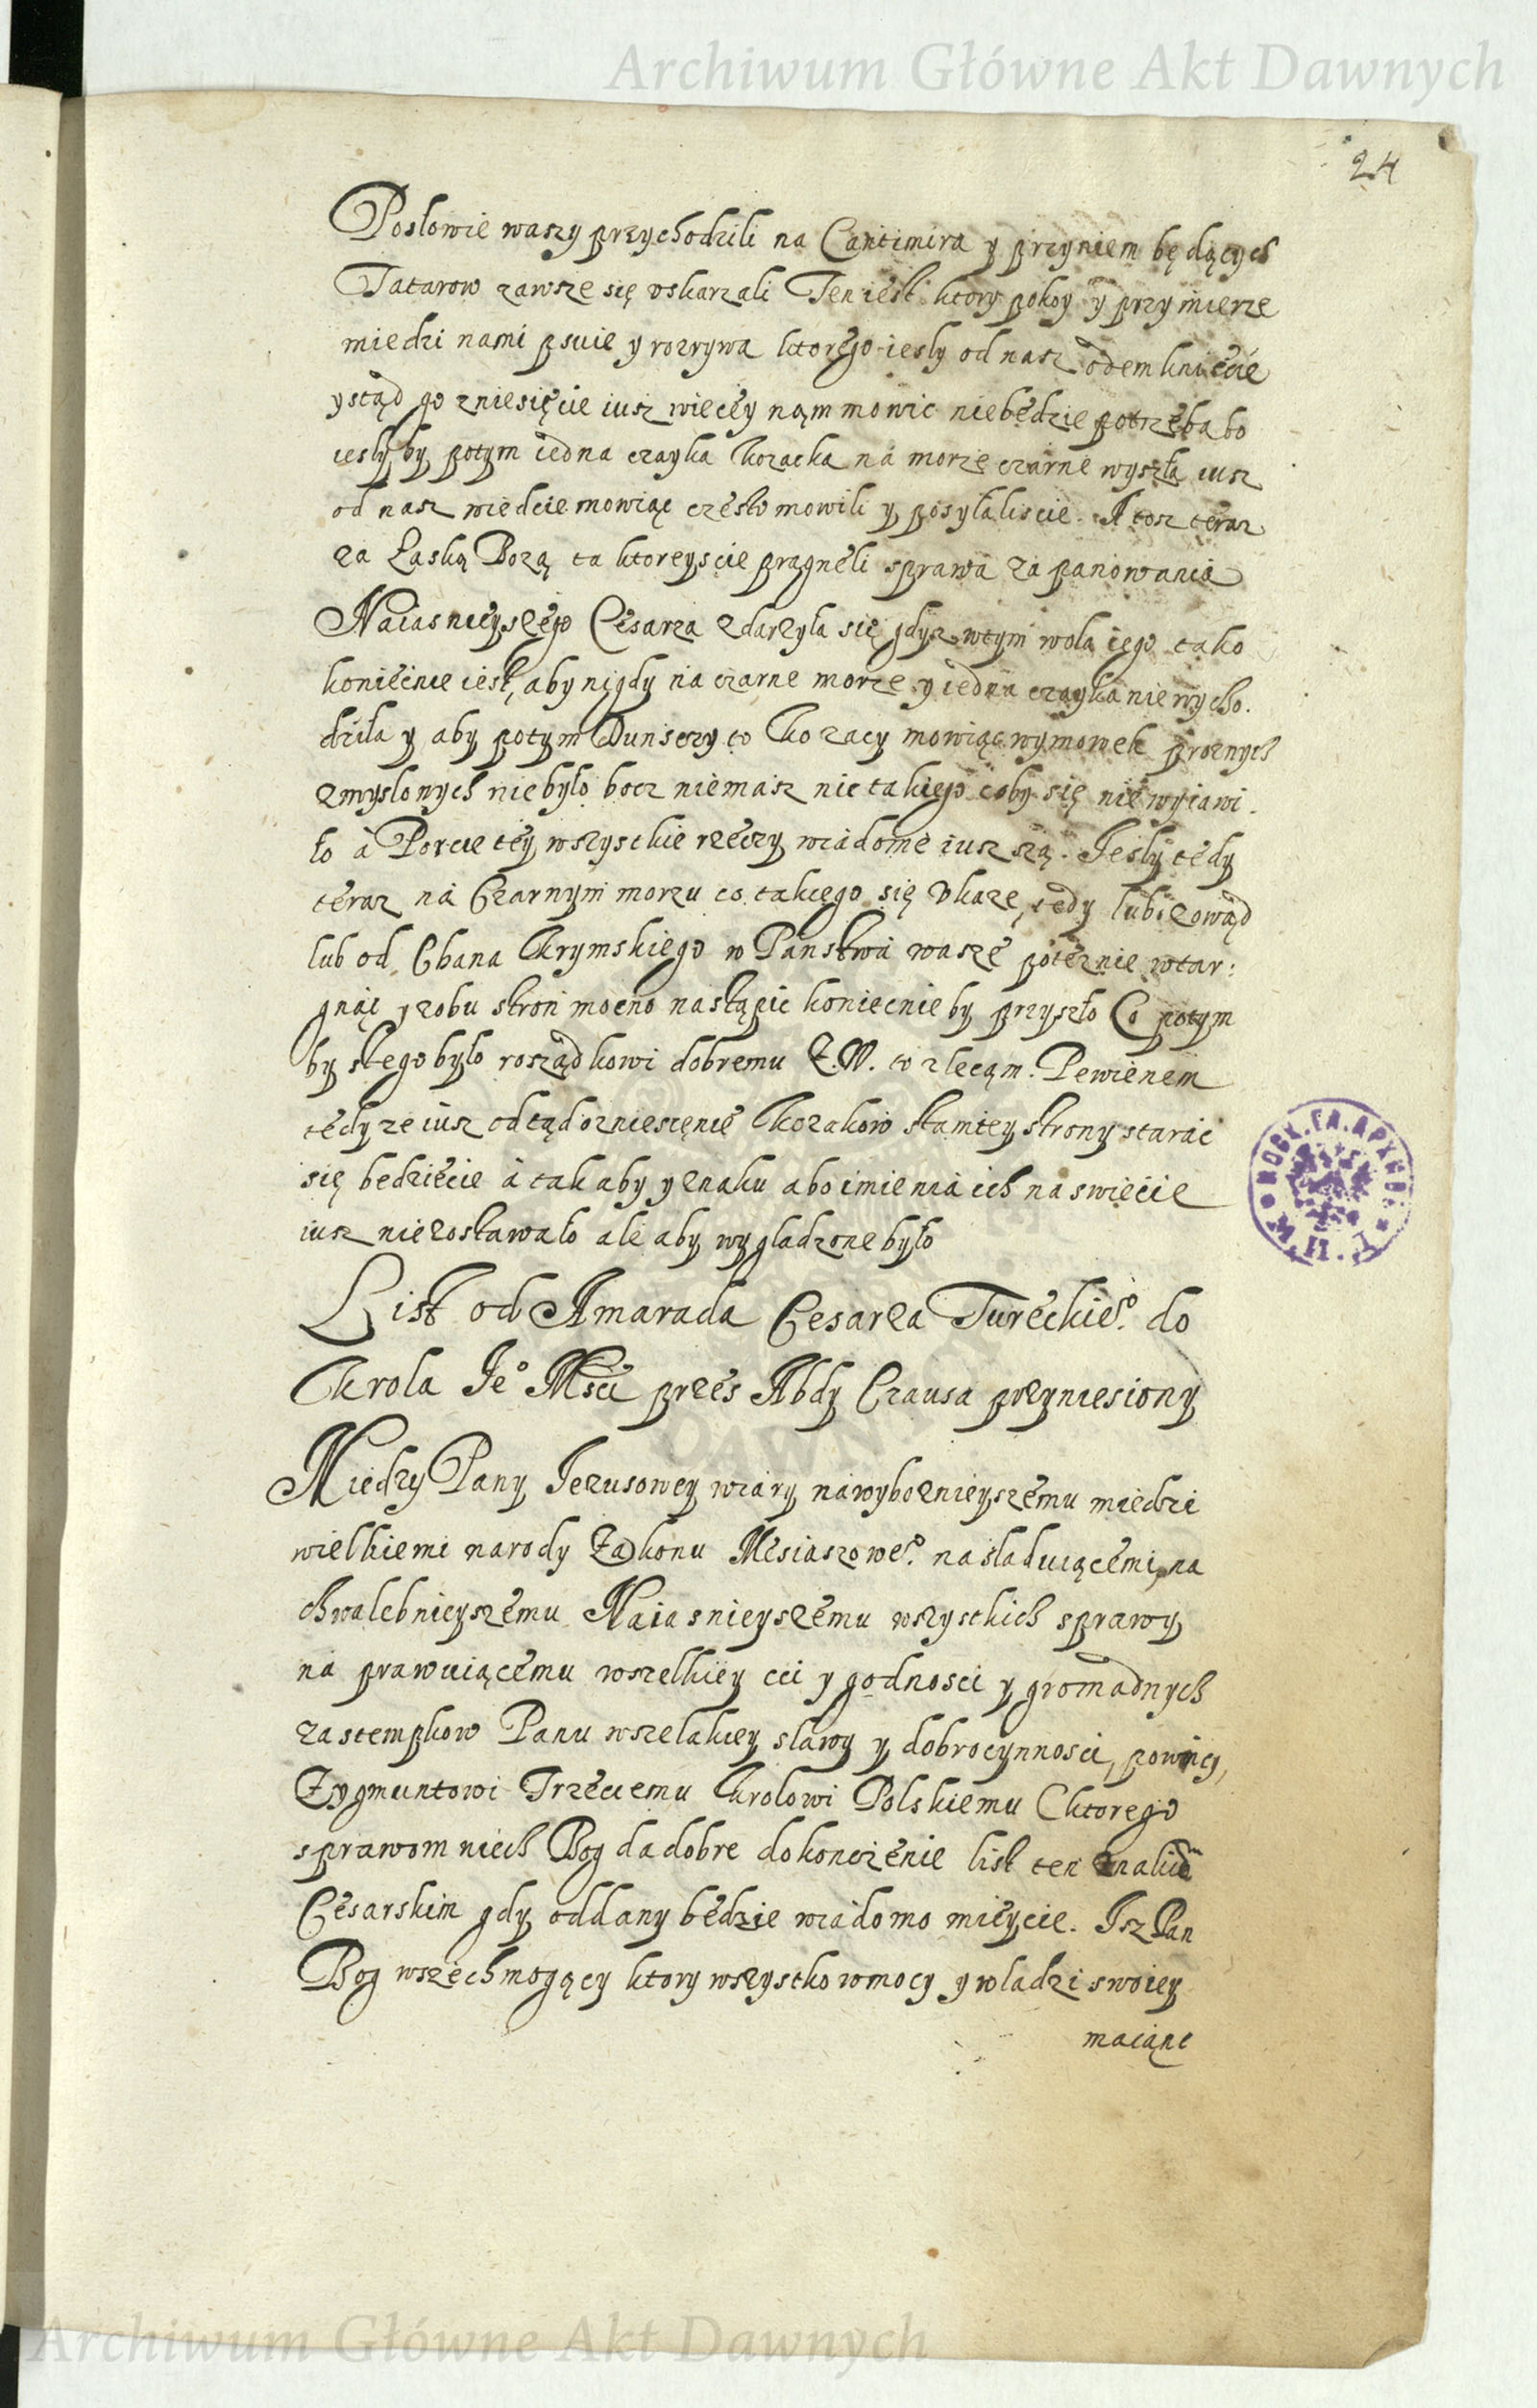 Archiwum Główne Akt Dawnych
24
Posłowie waszy przychodzili na Cantimira y przyniem będących
Tatarow zawsze się vskarzali Ten iest ktory pokoy y przymierze
miedzi nami psuie y rozrywa ktorego iesly od nasz odemkniecie
ystąd go zniesięcie iusz więcey nąm mowic niebędzie potrzeba bo
iesly by potym iedna czayka Kozacka na morze czarne wyszła iusz
od nasz wiedcie mowiąc często mowili y posyłaliscie. A tosz teraz
za Łaską Bozą ta ktoreyscie pragneli sprawa za panowania
Naiasnieyszego Cesarza zdarzyła się gdysz wtym wola iego tako
koniecnie iest, aby nigdy na czarne morze y iedna czayka niewycho.
dziła y aby potym Dunsczy to Kozacy mowiąc wymowek proznych
zmyslonych niebyło bocz niemasz nic takiego coby się niewyiawi.
ło a Porcie tey wszystkie rzeczy wiadome iusz są. Iesly tedy
teraz na Czarnym morzu co takiego się Vkaze, tedy lub zowąd
lub od Chana Krymskiego w Panstwa wasze potęznie wtar:
gnąć y zobu stron mocno nastąpic koniecnie by przyszło Co potym
by stego było rosządkowi dobremu Z.W. to zlecąm. Pewienem
tedy ze iusz odtąd ozniesięnie Kozakow stamtey strony starac
się bedziecie a tak aby y znaku abo imienia ich na swiecie
iusz niezostawało ale aby wygladzone było
List od Amarada Cesarza Tureckie͡o. do
Krola Ie͡o Mści przes Abdy Czausa przyniesiony
Miedzy Pany Iezusowey wiary nawyboznieyszemu miedzi
wielkiemi narody Zakonu Mesiaszowe͡o. nasladuiącemi, na
chwalebnieyszemu Naiasnieyszemu wszystkich sprawy
na prawuiącemu wszelkiey cci y godnosci y gromadnych
zastempkow Panu wszelakiey sławy y dobrocynnosci,
Zygmuntowi Trzeciemu Krolowi Polskiemu (ktorego
sprawom niech Bog da dobre dokonczenie list ten znakiem
Cesarskim gdy oddany będzie wiadomo mieycie. Isz Pan
Bog wszechmogący ktory wszystko wmocy y władzi swoiey
maiąnc
МОСК. ГЛ. АРХИВ
Archiwum Główne Akt Dawnych